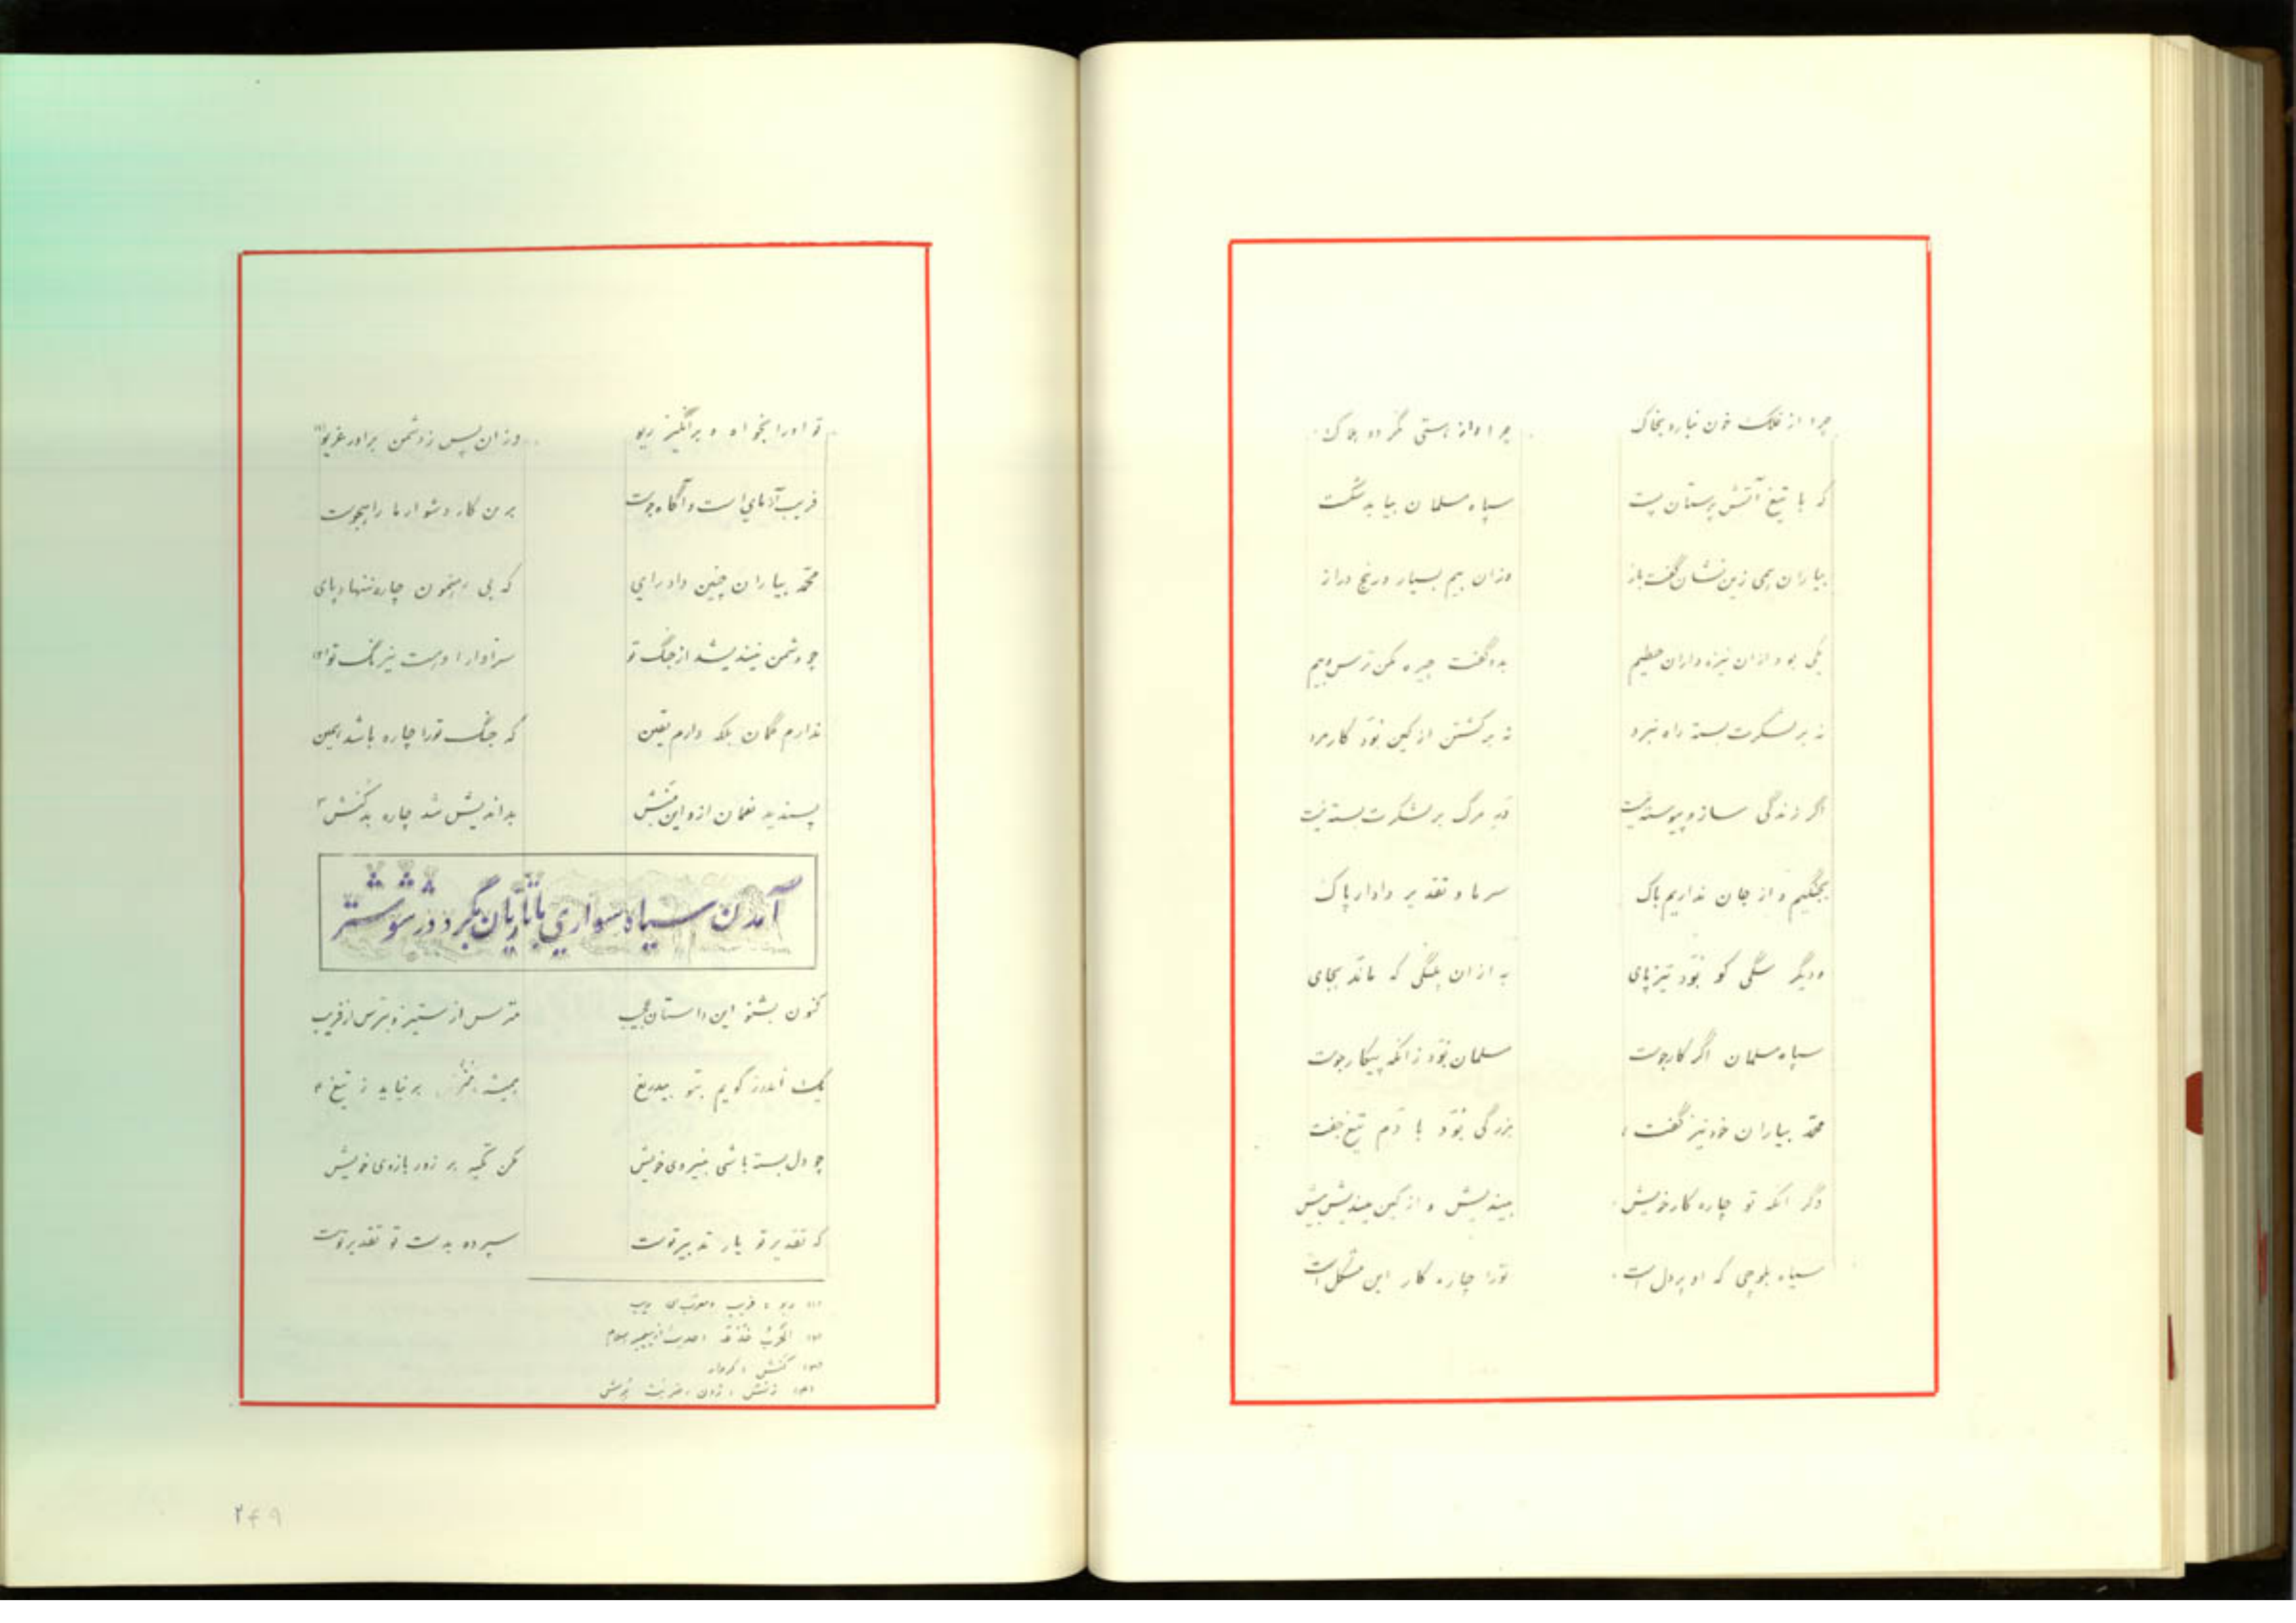 چرا از فلک خون نبارد بخاک
چرا او از هستی نگردد هلاک
که با تیغ آتش پرستان پست
سپاه مسلمان بیابد شکست
بیاران همی زین نشان گفت باز
وزان بیم بسیار و رنج دراز
یکی بود از آن نیزه داران عظیم
بدو گفت خیره مکن ترس و بیم
نه بر لشکرت بسته راه نبرد
نه برگشتن از کین بود کار مرد
اگر زندگی ساز و پیوسته نیست
در مرگ بر لشکرت بسته نیست
بجنگیم و از جان نداریم باک
سر ما و تقدیر دادار پاک
و دیگر سگی کو بود تیز پای
به از آن پلنگی که ماند بجای
سپاه مسلمان اگر کارجوست
مسلمان بود زانکه پیکارجوست
محمد بیاران خود نیز گفت
بزرگی بود با دم تیغ جفت
دگر آنکه تو چاره کار خویش
بیندیش و از کین میندیش بیش
سیاه بلوچی که او پردل است
تو را چاره کار این مشکل است
تو او را بخواه و برانگیز ریو
وزان پس ز دشمن برآور غریو (۱)
فریب آزمای است و آگاه جوست
برین کار دشوار ما را بجوست
محمد بیاران چنین داد رای
که بی رهنمون چاره ننهاد پای
چو دشمن نیندیشد از جنگ تو
سزاوار اوست نیرنگ تو (۲)
ندارم گمان بلکه دارم یقین
که جنگ تو را چاره باشد همین
پسندید نعمان ازو این منش
بداندیش شد چاره بدکنش ۳
آمدن سیاه سواری با تازیان بگرد در شوشتر
کنون بشنو این داستان عجیب
مترس از ستیز و بترس از فریب
یک اندرز گویم بتو بیدریغ
همیشه برنیاید ز تیغ ۴
چو دل بسته باشی بنیروی خویش
مکن تکیه بر زور بازوی خویش
که تقدیر تو یار تدبیر توست
سپرده بدست تو تقدیر توست
(۱) ریو : فریب
(۲) الحرب خدعة حدیث از پیغمبر اسلام
(۳) کنش : کردار
(۴) زنش : زدن ، ضربت
۲۴۹